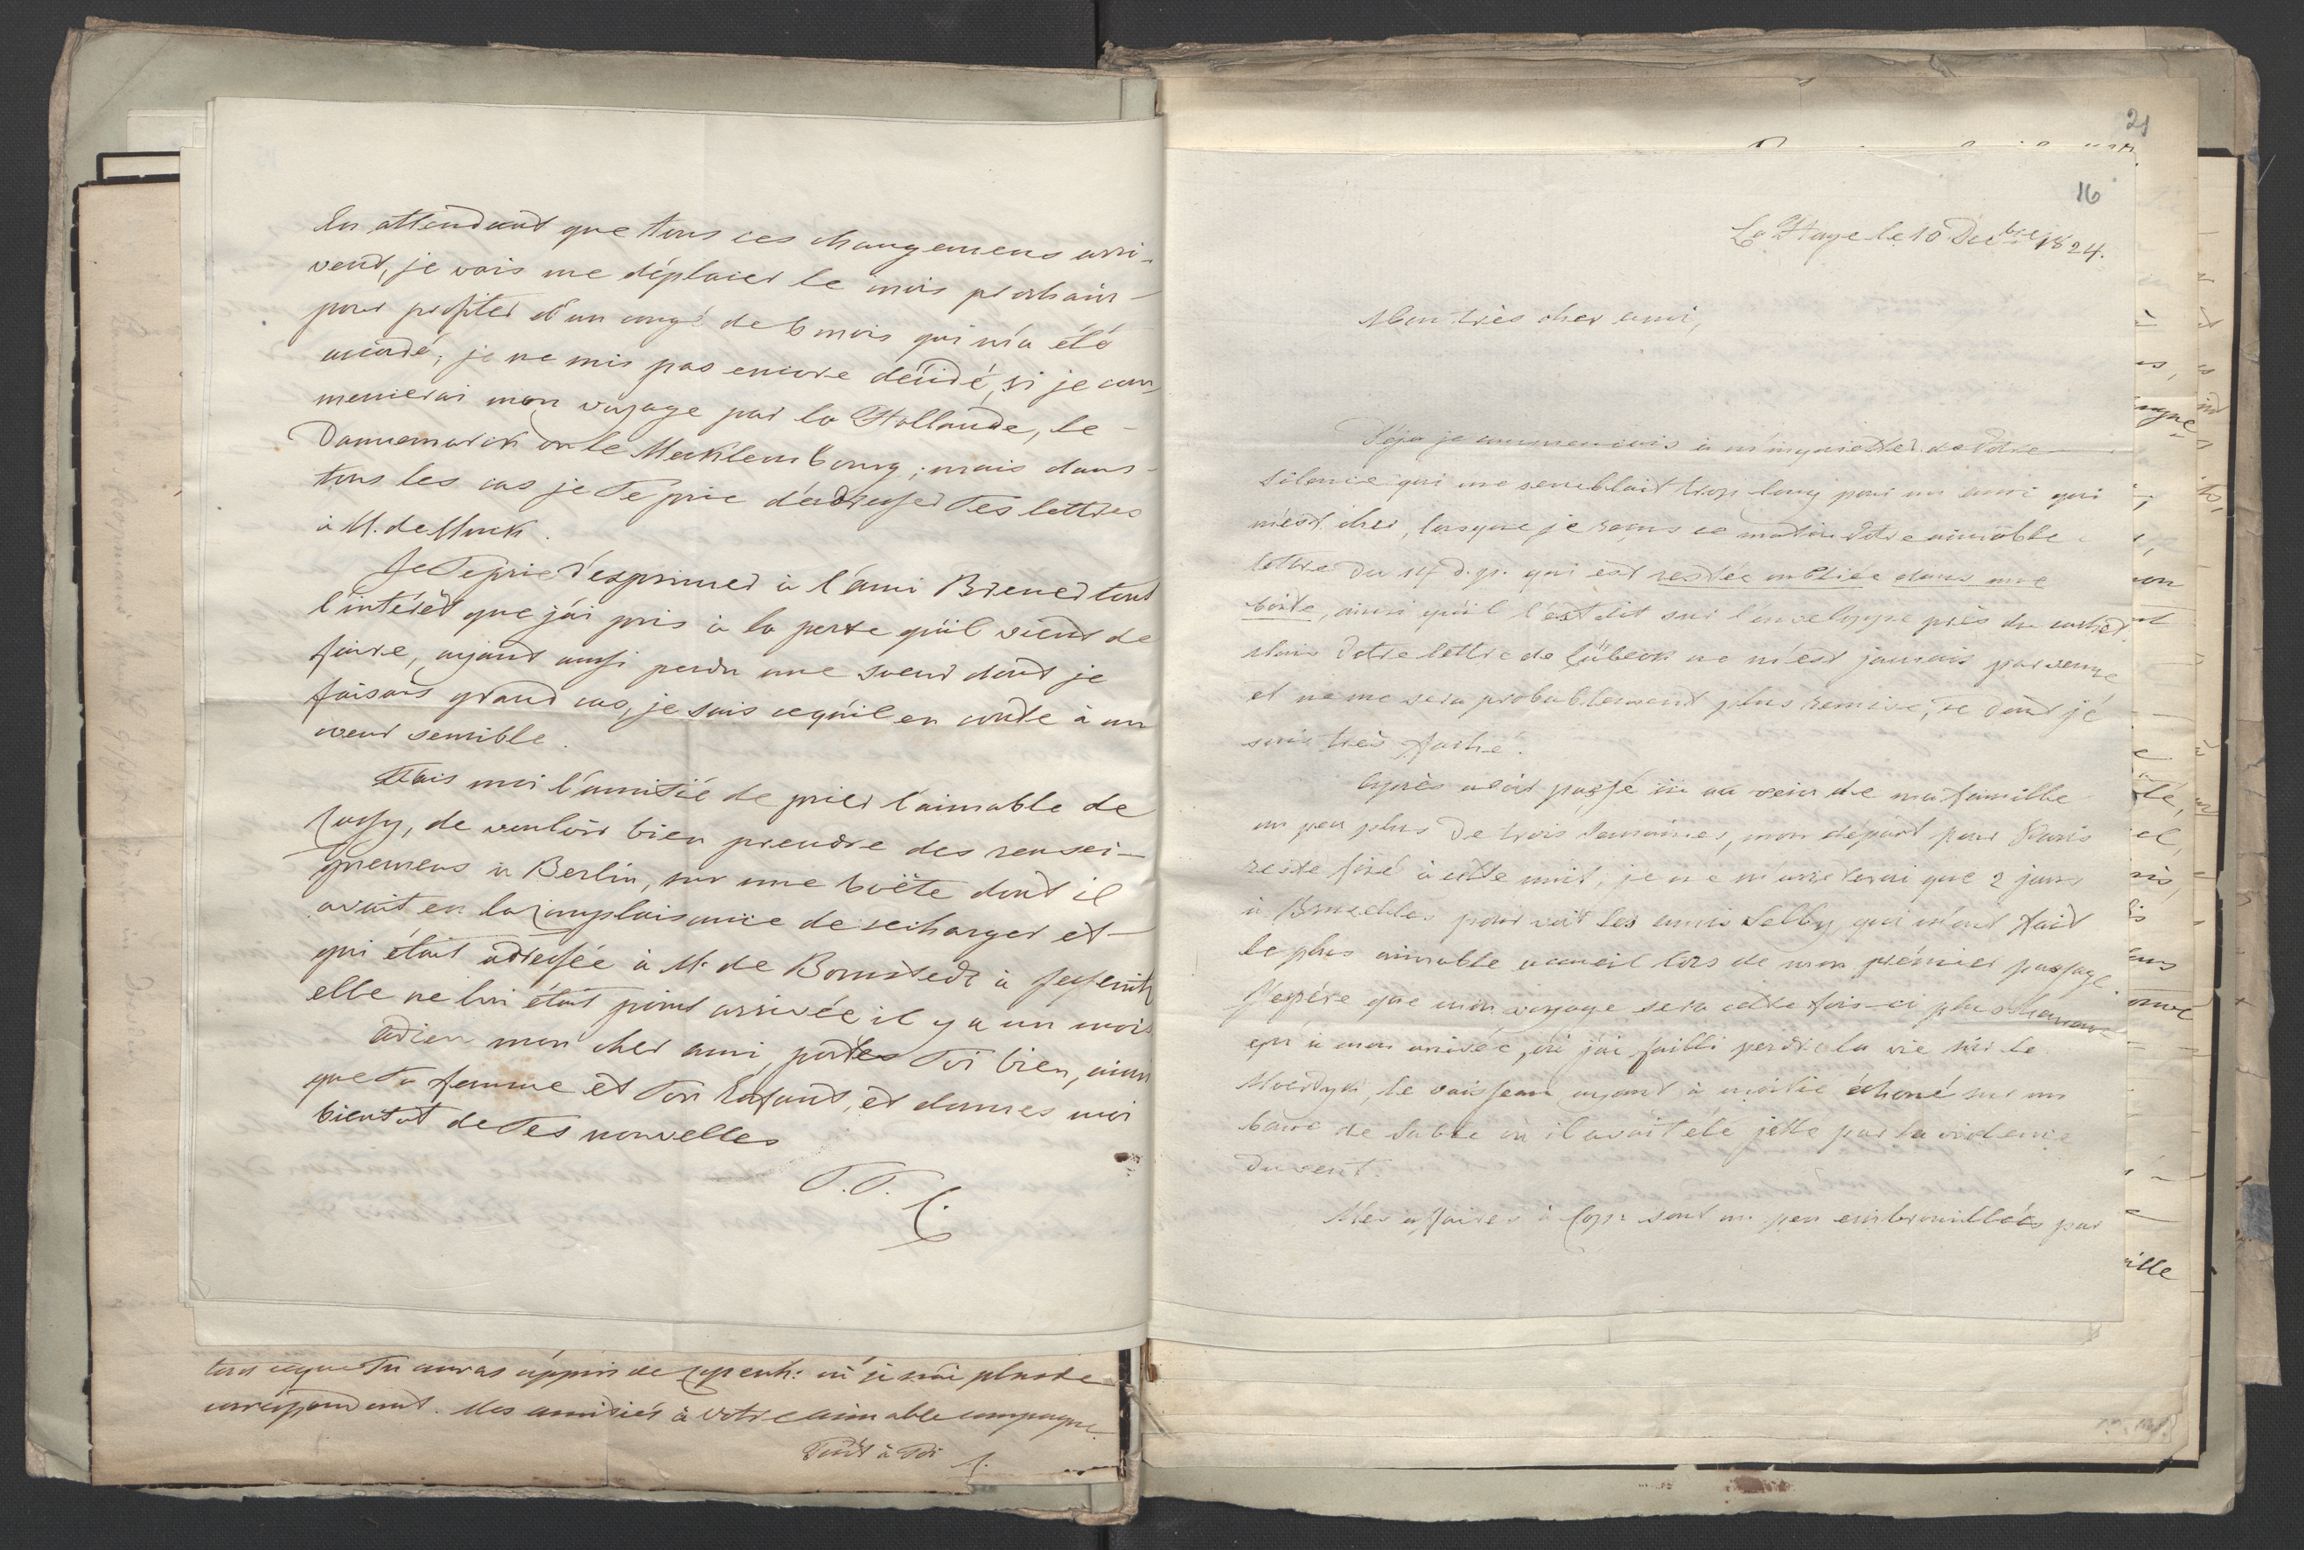 En attendant que tous ces changemens arri-
vent, je vais me déplacer le mois prochain
pour profiter d'un congé de 6 mois qui m'a été
accordé; je ne suis pas encore décidé, si je com-
mencerai mon voyage par la Hollande, le
Dannemarck ou le Mecklembourg; mais dans
tous les cas je Te prie d'adresser Tes lettres
à M. de
Je Te prie d'exprimer à l'ami Brener tout
l'intérêt que j'ai pris à la perte qu'il vient de
faire, ayant aussi perdu une soeur dont je
faisais grand cas, je sais ce qu'il en coute à un
coeur sensible.
Fais moi l'amitié de prier l'aimable de
de vouloir bien prendre des rensei-
gnemens à Berlin, sur une boëte dont il
avait eu la complaisance de se charger et
qui était adressée à M. de Bornstedt à
elle ne lui était point arrivée il y a un mois
Adieu mon cher ami, portes Toi bien, ainsi
que Ta femme et Ton Enfant, et donnes moi
bientot de Tes nouvelles
T. T.
C.
tout ce que Tu auras appris de Copenh: où je n'ai plus de
correspondant. Mes amitiés à votre aimable compagne.
Tout à Toi
21
16
La Haye le 10 Decbre 1824.
Mon très cher ami,
Déja je commencais à m'inquietter de Votre
silence qui me semblait trop long pour un ami qui
m'est cher, lorsque je reçus ce matin Votre aimable
lettre du 14 d. p. qui est restée oubliée dans une
boite, ainsi qu'il l'est dit sur l'enveloppe près du cachet
Votre lettre de Lübeck ne m'est jamais parvenue
et ne me sera probablement plus remise, ce dont je
suis très faché.
Après avoir passé ici au sein de ma famille
un peu plus de trois semaines, mon départ pour Paris
reste fixé à cette nuit; je ne m'arreterai que 2 jours
à Bruxelles pour voir les amis Selby, qui m'ont fait
le plus aimable accueil lors de mon prémier passage.
J'espére que mon voyage sera cette fois-ci plus heureux
qu'à mon arrivée, où j'ai failli perdre la vie sur le
Moerdyk, le vaisseau ayant à moitié échoué sur un
banc de sable où il avait été jetté par la violence
du vent.
Mes affaires à Copn sont un peu embrouillées par